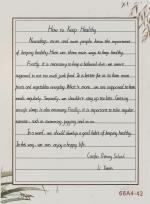 How to Keep Healthy
Nowadays, more and more people know the importance
of keeping healthy. Here are three main ways to keep healthy.
Firstly, it is necessary to keep a balanced diet. we were
supposed to eat too much junk food. It is better for us to have more
fruits and vegetables everyday. What's more, we are supposed to have
meals regularly. Secondly, we shouldn't stay up too late. Getting
enough sleep is also necessary. Finally, it is important to take regular
exercise, such as swimming, jogging and so on.
In a word, we should develop a good habit of keeping healthy.
In this way, we can enjoy a happy life.
Primary School
Li
66A4-42